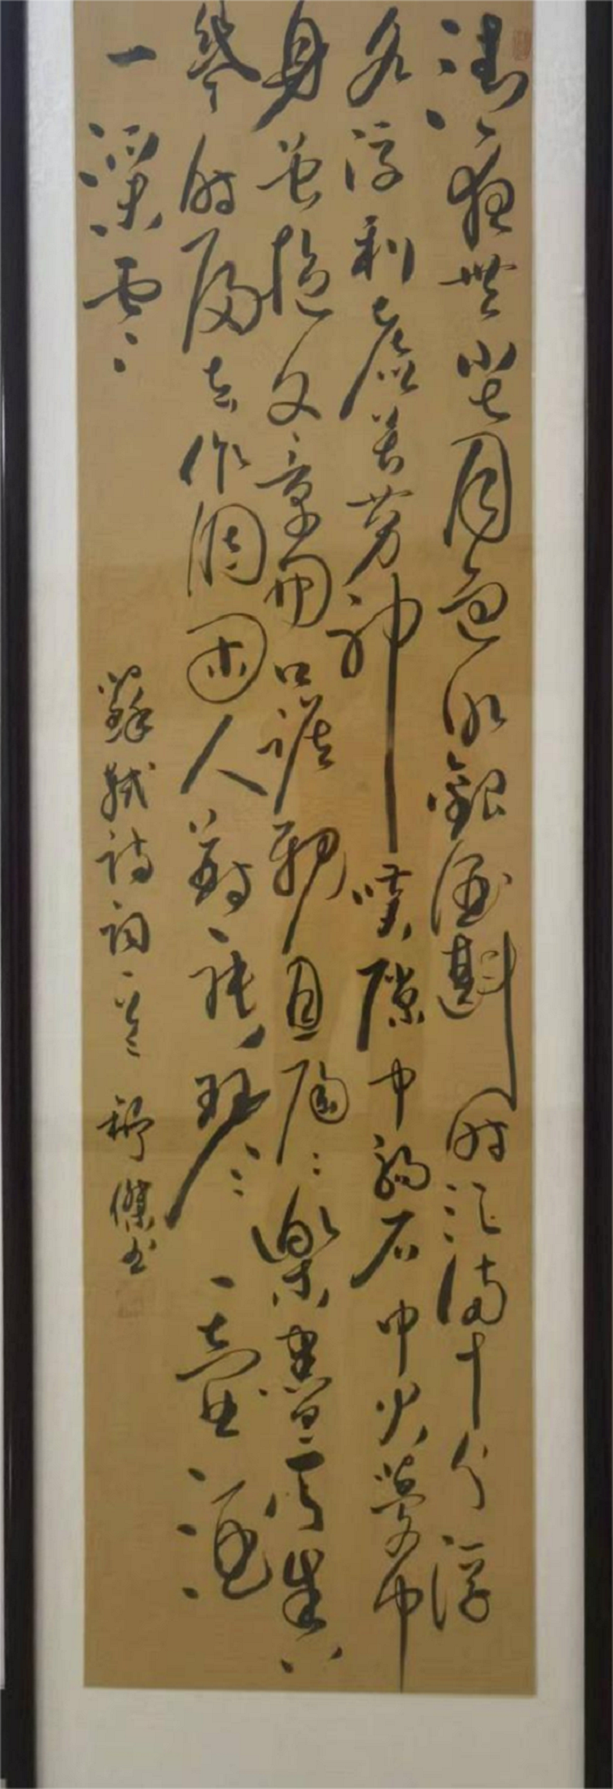 清夜無塵月色如銀酒斟時須滿十分浮
名浮利虛苦勞神嘆隙中駒石中火夢中
身虽抱文章開口誰親且陶陶樂盡天真
幾時歸去作個閑人對一張琴一壺酒
一溪雲
蘇軾詩詞一首 傑書